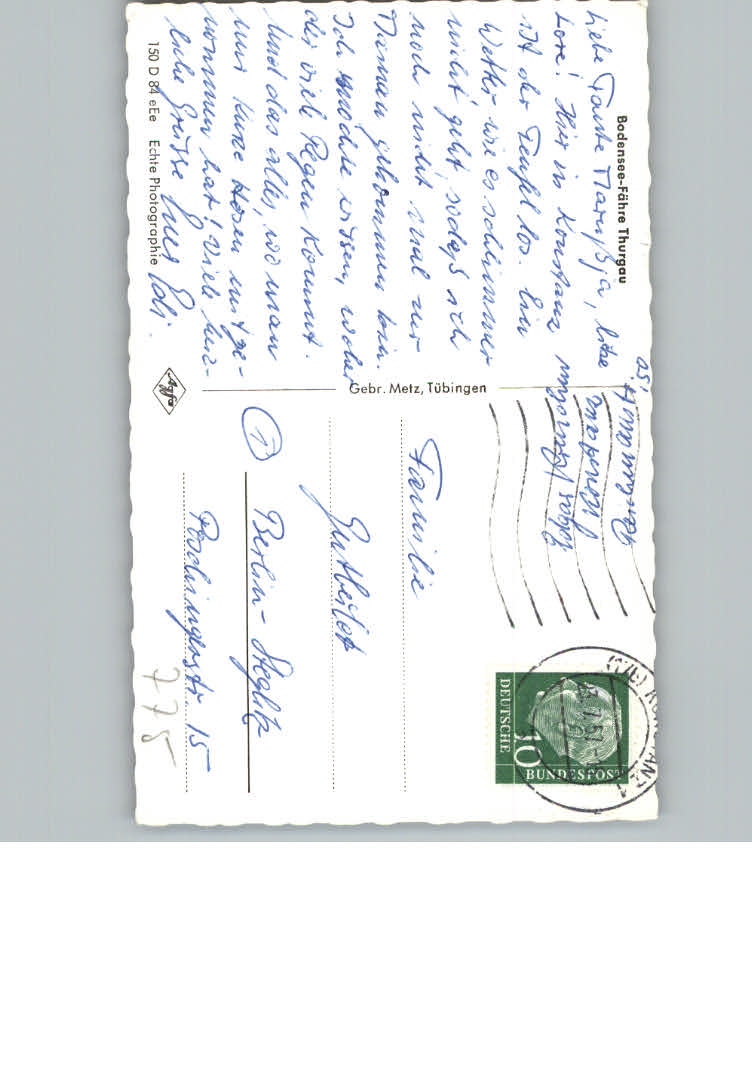 Bodensee-Fähre Thurgau
Liebe Tante Marußja, liebe
Lore! Hier in Konstanz
ist der Teufel los. Ein
Wetter wie es schlimmer
nicht geht, sodaß ich
noch nicht mal zur
gekommen bin.
Ich möchte wissen, woher
der viele Regen kommt.
Und das alles, wo man
nur kurze Hosen mitge-
nommen hat! Viele herz-
liche Grüsse Euer
150 D 84 eEe Echte Photographie
Agfa
Gebr. Metz, Tübingen
Konstanz
Familie
Gutbeilet
Berlin-Steglitz
15
775
DEUTSCHE
BUNDESPOST
10
KONSTANZ